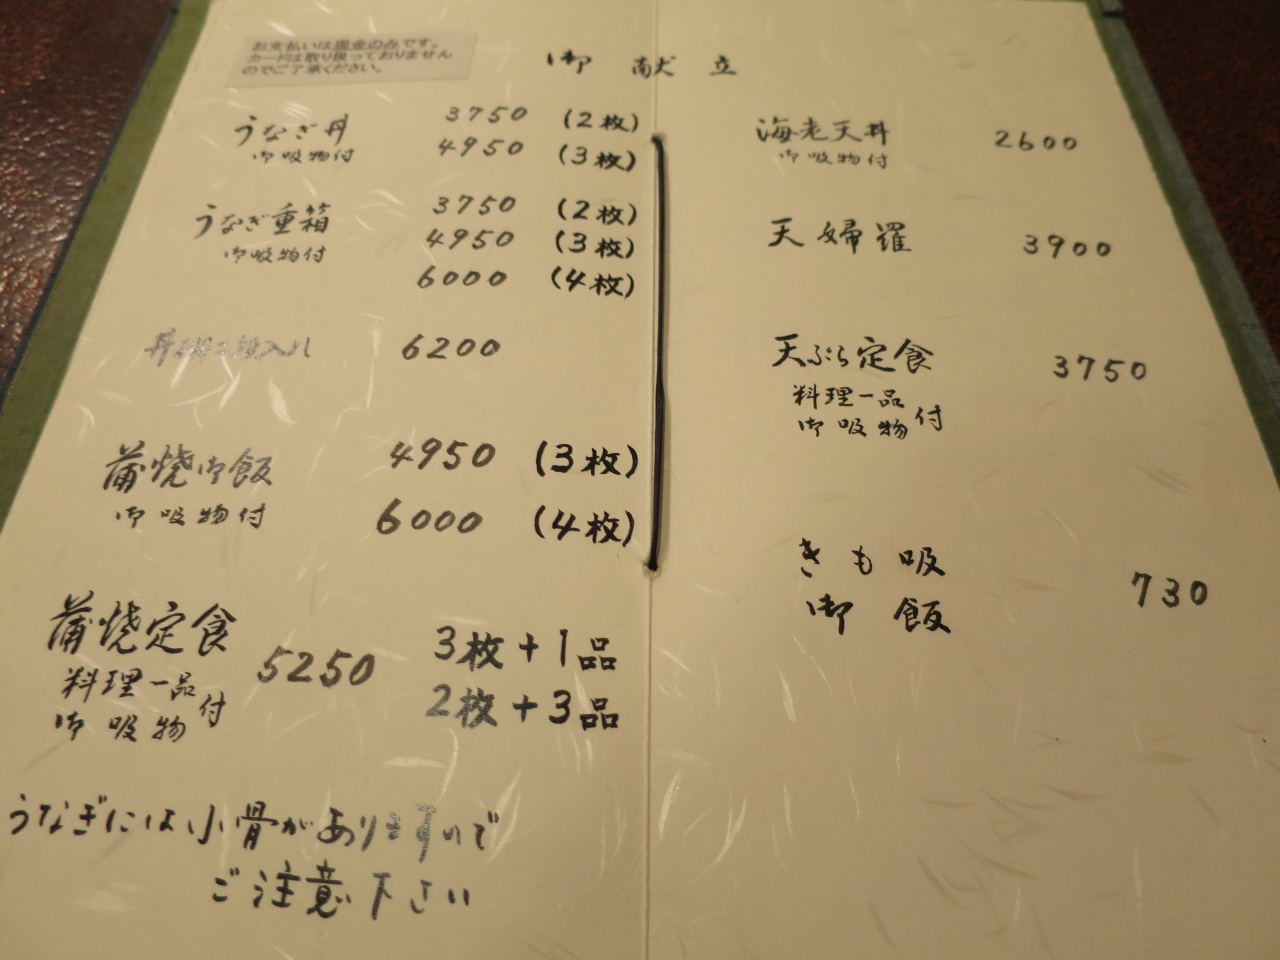 お支払いは現金のみです。
カードは取り扱っておりません
のでご了承ください。
御献立
うなぎ丼 3750 (2枚)
御吸物付 4950 (3枚)
うなぎ重箱 3750 (2枚)
御吸物付 4950 (3枚)
6000 (4枚)
入れ 6200
蒲焼御飯 4950 (3枚)
御吸物付 6000 (4枚)
蒲焼定食 5250 3枚+1品
料理一品 2枚+3品
御吸物付
うなぎには小骨がありますので
ご注意下さい
海老天丼 2600
御吸物付
天婦羅 3900
天ぷら定食 3750
料理一品
御吸物付
きも吸
御飯 730